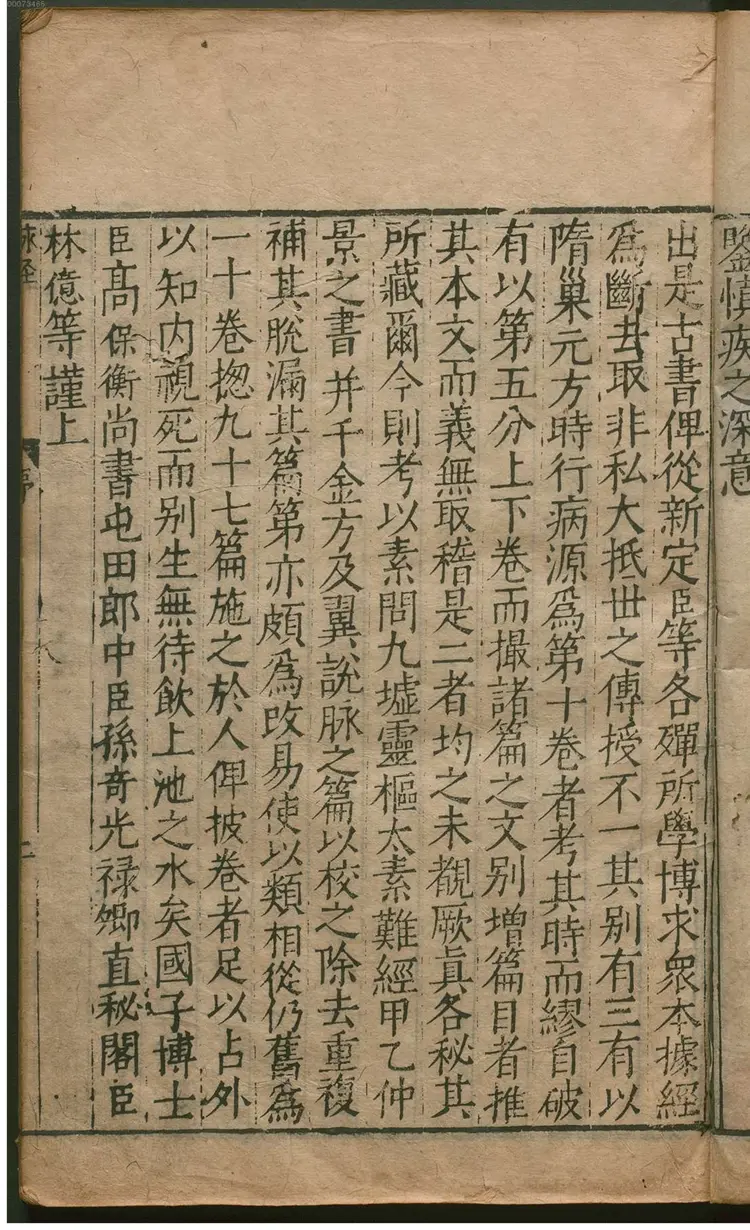 鑒慎疾之深意
出是古書俾從新定臣等各殫所學博求衆本據經
爲斷去取非私大抵丗之傳授不一其别有三有以
隋巢元方時行病源爲第十卷者考其時而繆自破
有以第五分上下卷而撮諸篇之文别增篇目者推
其本文而義無取稽是二者均之未覩厥眞各秘其
所藏爾今則考以素問九墟靈樞太素難經甲乙仲
景之書并千金方及翼說脉之篇以校之除去重複
補其脫漏其篇第亦頗爲改易使以類相從仍舊爲
一十卷揔九十七篇施之於人俾披卷者足以占外
以知内視死而别生無待飲上池之水矣國子博士
臣高保衡尚書屯田郎中臣孫奇光禄卿直秘閣臣
林億等謹上
脉經 序 二
00073466